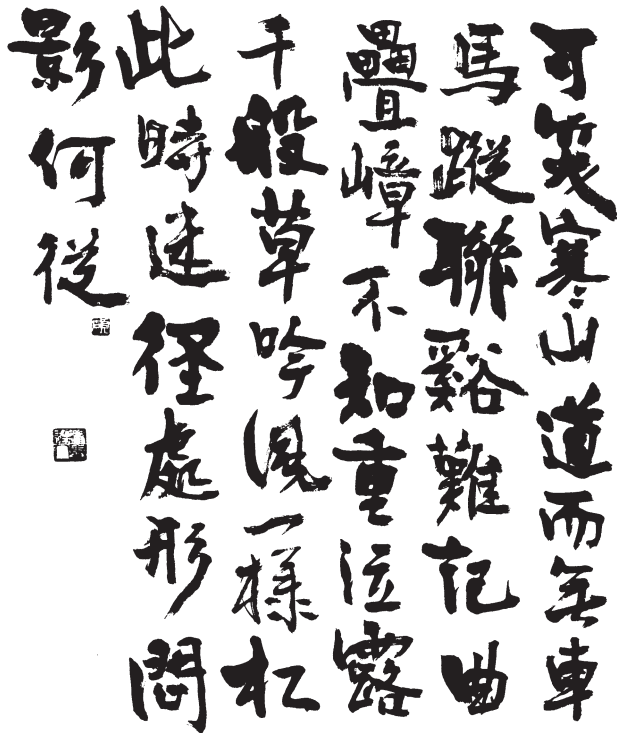 可笑寒山道而無車
馬蹤聯谿難記曲
疊嶂不知重泣露
千般草吟風一樣松
此時迷径處形問
影何從